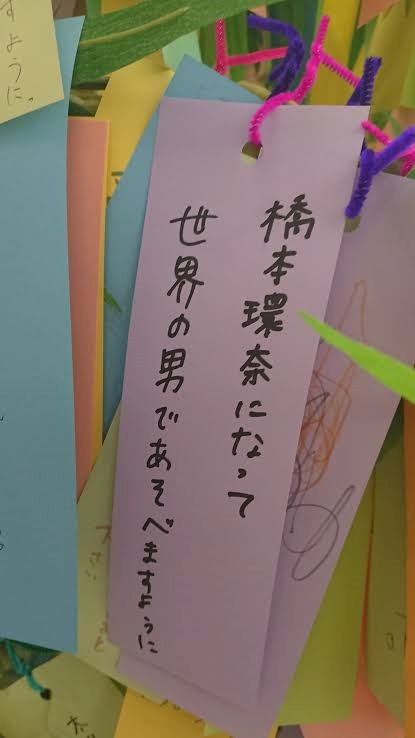 橋本環奈になって
世界の男であそべますように
すように。